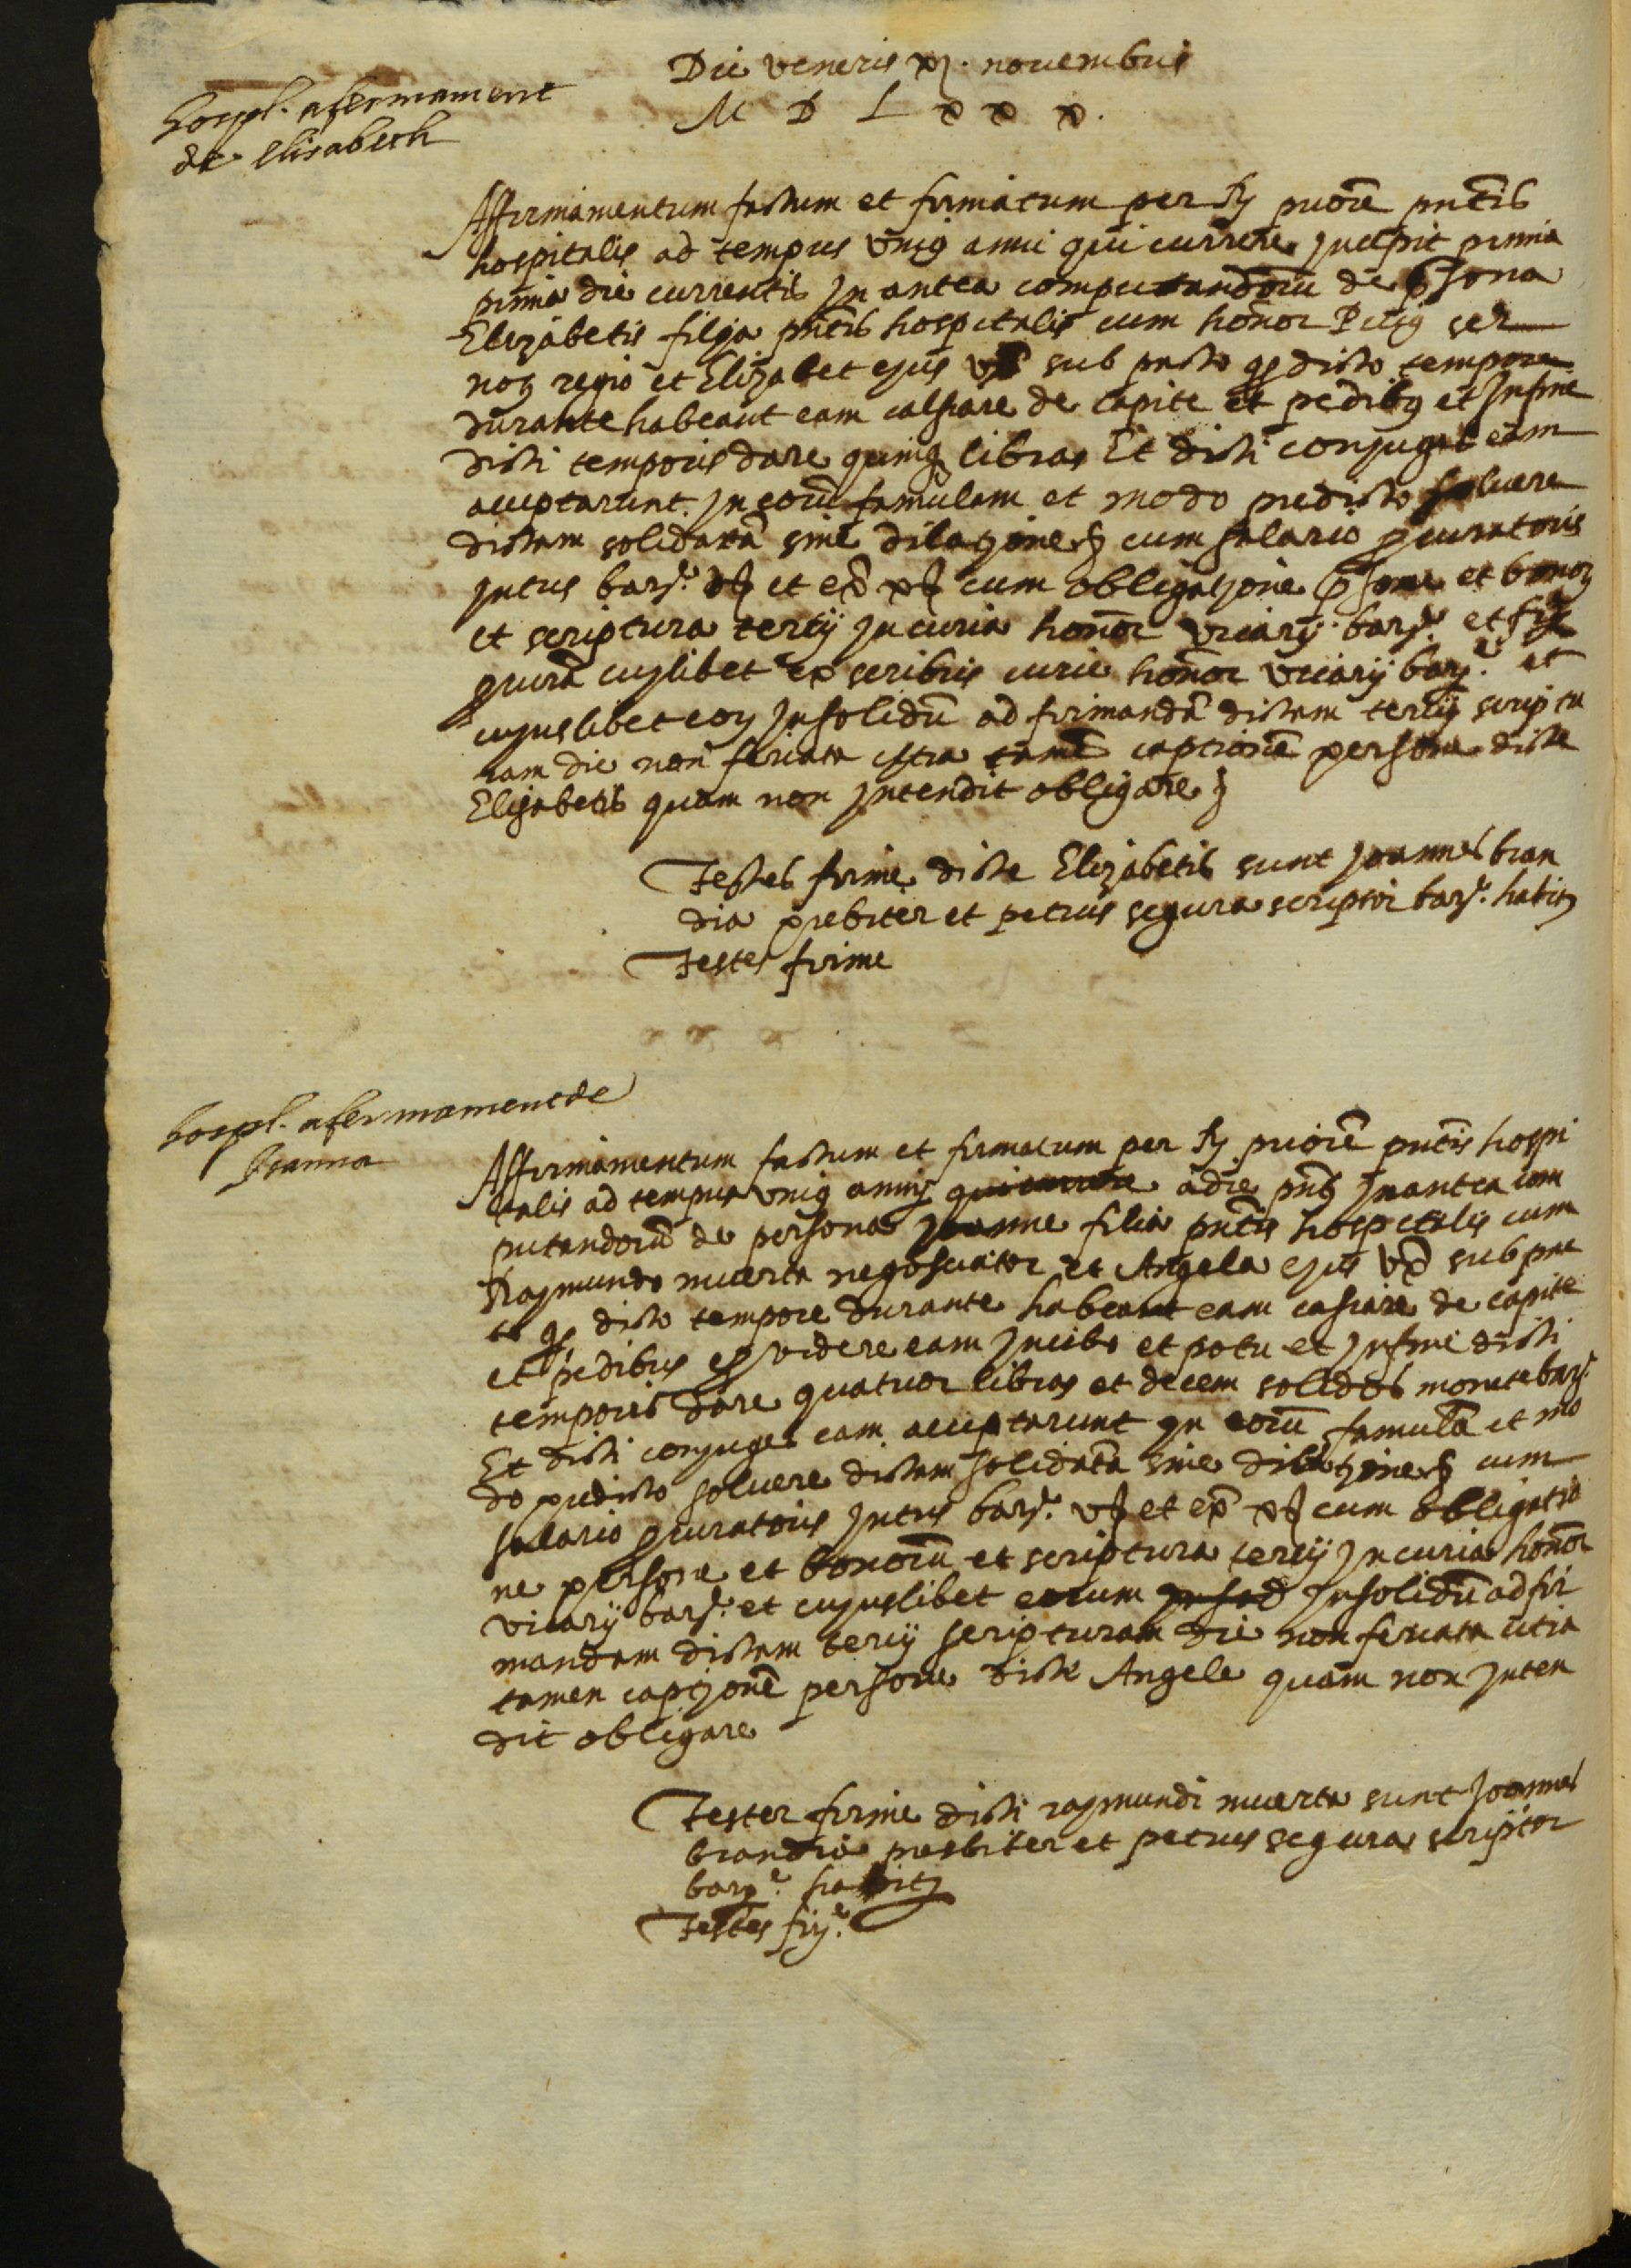 Die veneris xj. nouembris
M D L x x x.
hospl. afermament
de Elisabeth
Affirmamentum factum et firmatum per Rm priorē pntis
hospitalis ad tempus vniꝰ anni qui currere incepit prima
prima die currentis In antea computandorū de psona
Elizabetis filia pntis hospitalis cum honor
noz regio et Elizabet ejus vx sub pacto qd dicto tempore
durante habeant eam calsiare de capite et pedibꝰ et In fine
dicti temporis dare quinqꝫ libras Et dicti conjuges eam
acceptarunt. In eorū famulam et modo predicto soluere
dictam solidatā sine dilacione cum salario pcuratoris
Intus barne. v s et ex x s cum obligatione psone et bonoz
et scriptura tercij In curia honor vicarij barne. et
cujslibet ex scribis curie honor vicarij barne. et
cujuslibet eoz Insolidū ad firmandā dictam tercij scriptu
ram die non feriata citra tamē captionē persone dicte
Elizabetis quam non Intendit obligare
Testes firme dicte Elizabetis sunt Joannes bran
dia prebiter et petrus segura scriptor barne. habitz
Testes firme
hospl. afermament de
Joanna
Affirmamentum factum et firmatum per Rm priorē pntis hospi
talis ad tempus vniꝰ annij qui currere a die pnti In antea com
putandorū de persona Joanne filia pntis hospitalis cum
Raymundo muerta negosciator et Angela ejus vx sub pac
to qd dicto tempore durante habeant eam casiare de capite
et pedibus et prouidere eam In cibo et potu et In fine dicti
temporis dare quatuor libras et decem solidos monete barne.
Et dicti conjuges eam acceptarunt In eorū famulā et mo
do predicto soluere dictam solidatā sine dilatione cum
salario pcuratoris Intus barne. v s et ex x s cum obligatio
ne persone et bonorū et scriptura tercij In curia honor
vicarij barne. et cujuslibet eorum In sod Insolidū ad fir
mandam dictam tercij scripturam die non feriata citra
tamen captionē persone dicte Angele quam non Inten
dit obligare
Testes firme dicti raymundi muerta sunt Joannes
brandia presbiter et petrus segura scriptor
barne. habitz
Testes